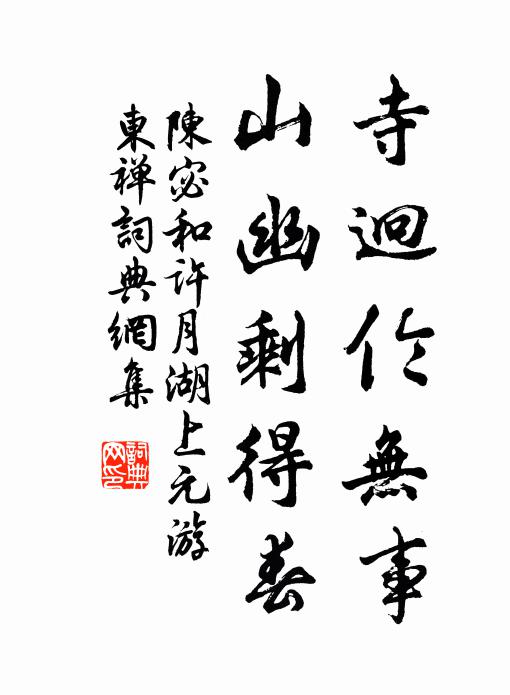 寺迥伶無事
山幽剩得春
陳宓和許月湖上元游
東禅詞典網集
詞典
网印